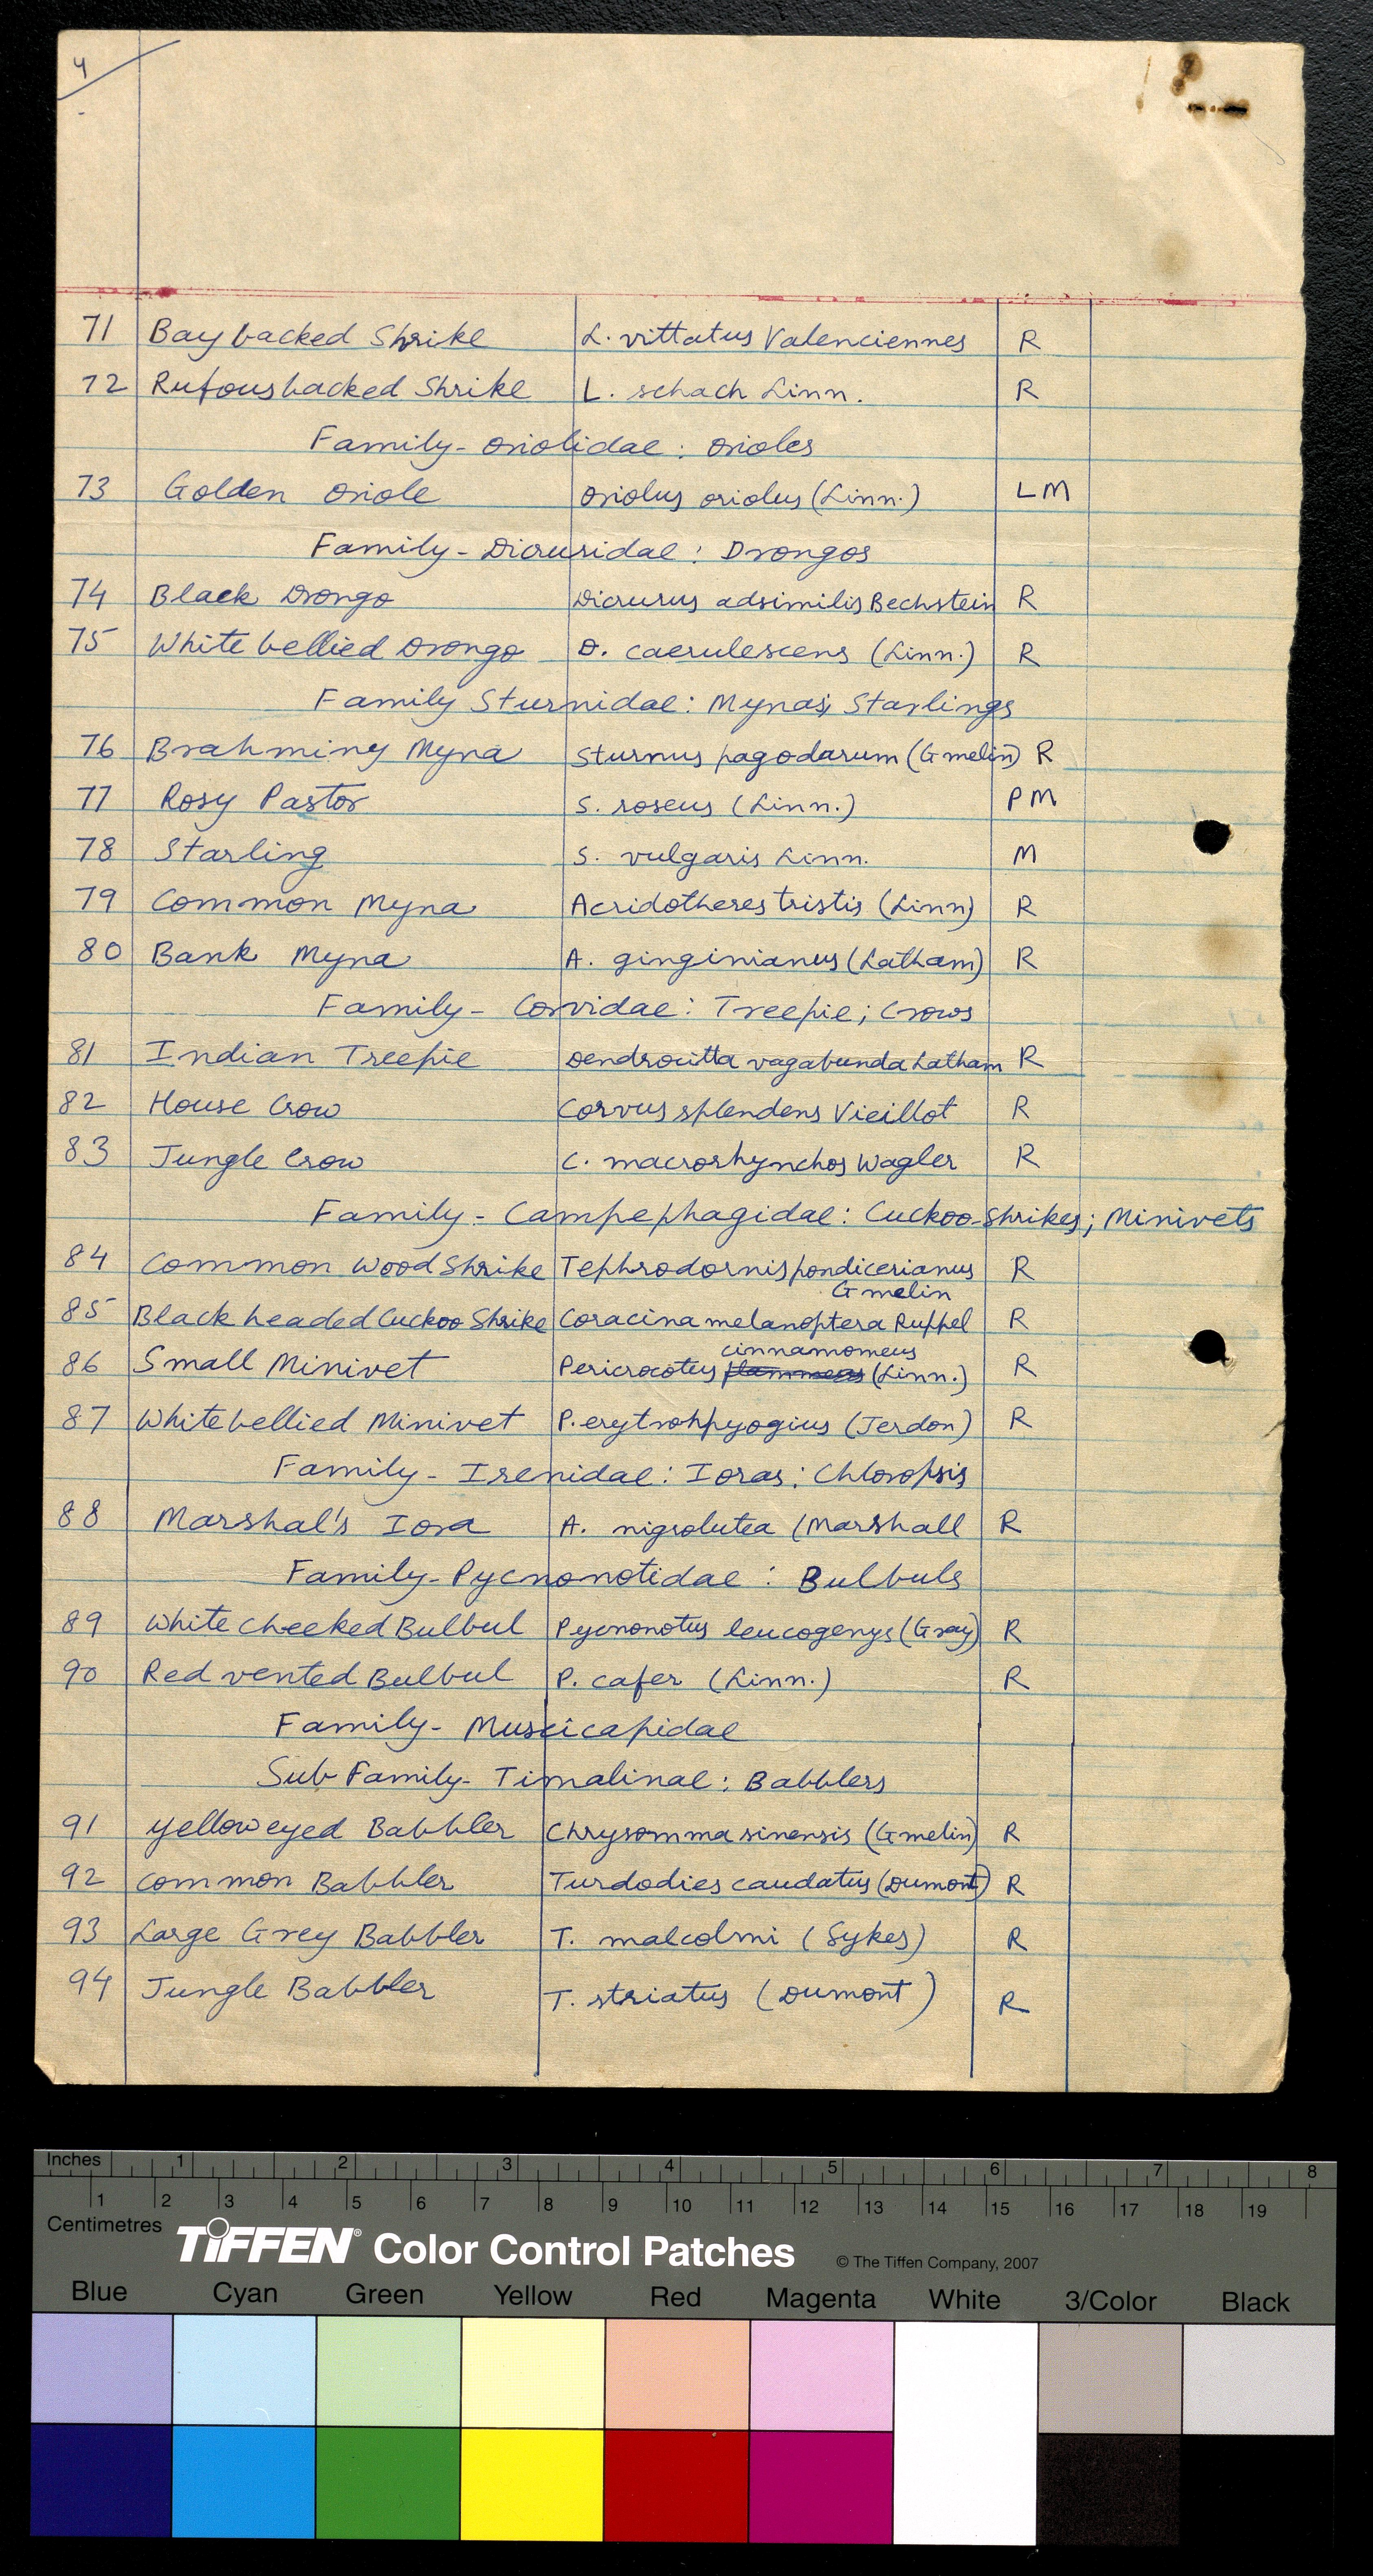 4
71 Bay backed Shrike L. vittatus Valenciennes R
72 Rufousbacked Shrike L. schach Linn. R
Family - Oriolidae : Orioles
73 Golden Oriole Oriolus oriolus (Linn.) LM
Family - Dicruridae : Drongos
74 Black Drongo Dicrurus adsimilis Bechstein R
75 White bellied Drongo D. caerulescens (Linn.) R
Family Sturnidae : Mynas; Starlings
76 Brahminy Myna Sturnus pagodarum (Gmelin) R
77 Rosy Pastor S. roseus (Linn.) PM
78 Starling S. vulgaris Linn. M
79 Common Myna Acridotheres tristis (Linn) R
80 Bank Myna A. ginginianus (Latham) R
Family - Corvidae : Treepie ; Crows
81 Indian Treepie Dendrocitta vagabunda Latham R
82 House Crow Corvus splendens Vieillot R
83 Jungle Crow C. macrorhynchos Wagler R
Family - Campephagidae : Cuckoo-Shrikes ; Minivets
84 Common Wood Shrike Tephrodornis pondicerianus R
Gmelin
85 Black headed Cuckoo Shrike Coracina melanoptera Ruppel R
cinnamomeus
86 Small Minivet Pericrocotus flammeus (Linn.) R
87 Whitebellied Minivet P. erytrohpyogius (Jerdon) R
Family - Irenidae : Ioras ; Chloropsis
88 Marshal's Iora A. nigrolutea (Marshall R
Family - Pycnonotidae : Bulbuls
89 White cheeked Bulbul Pycnonotus leucogenys (Gray) R
90 Red vented Bulbul P. cafer (Linn.) R
Family - Muscicapidae
Sub Family - Timalinae : Babblers
91 Yelloweyed Babbler Chrysomma sinensis (Gmelin) R
92 Common Babbler Turdodies caudatus (Dumont) R
93 Large Grey Babbler T. malcolmi (Sykes) R
94 Jungle Babbler T. striatus (Dumont) R
Inches 1 2 3 4 5 6 7 8
1 2 3 4 5 6 7 8 9 10 11 12 13 14 15 16 17 18 19
Centimetres
TIFFEN® Color Control Patches © The Tiffen Company, 2007
Blue Cyan Green Yellow Red Magenta White 3/Color Black